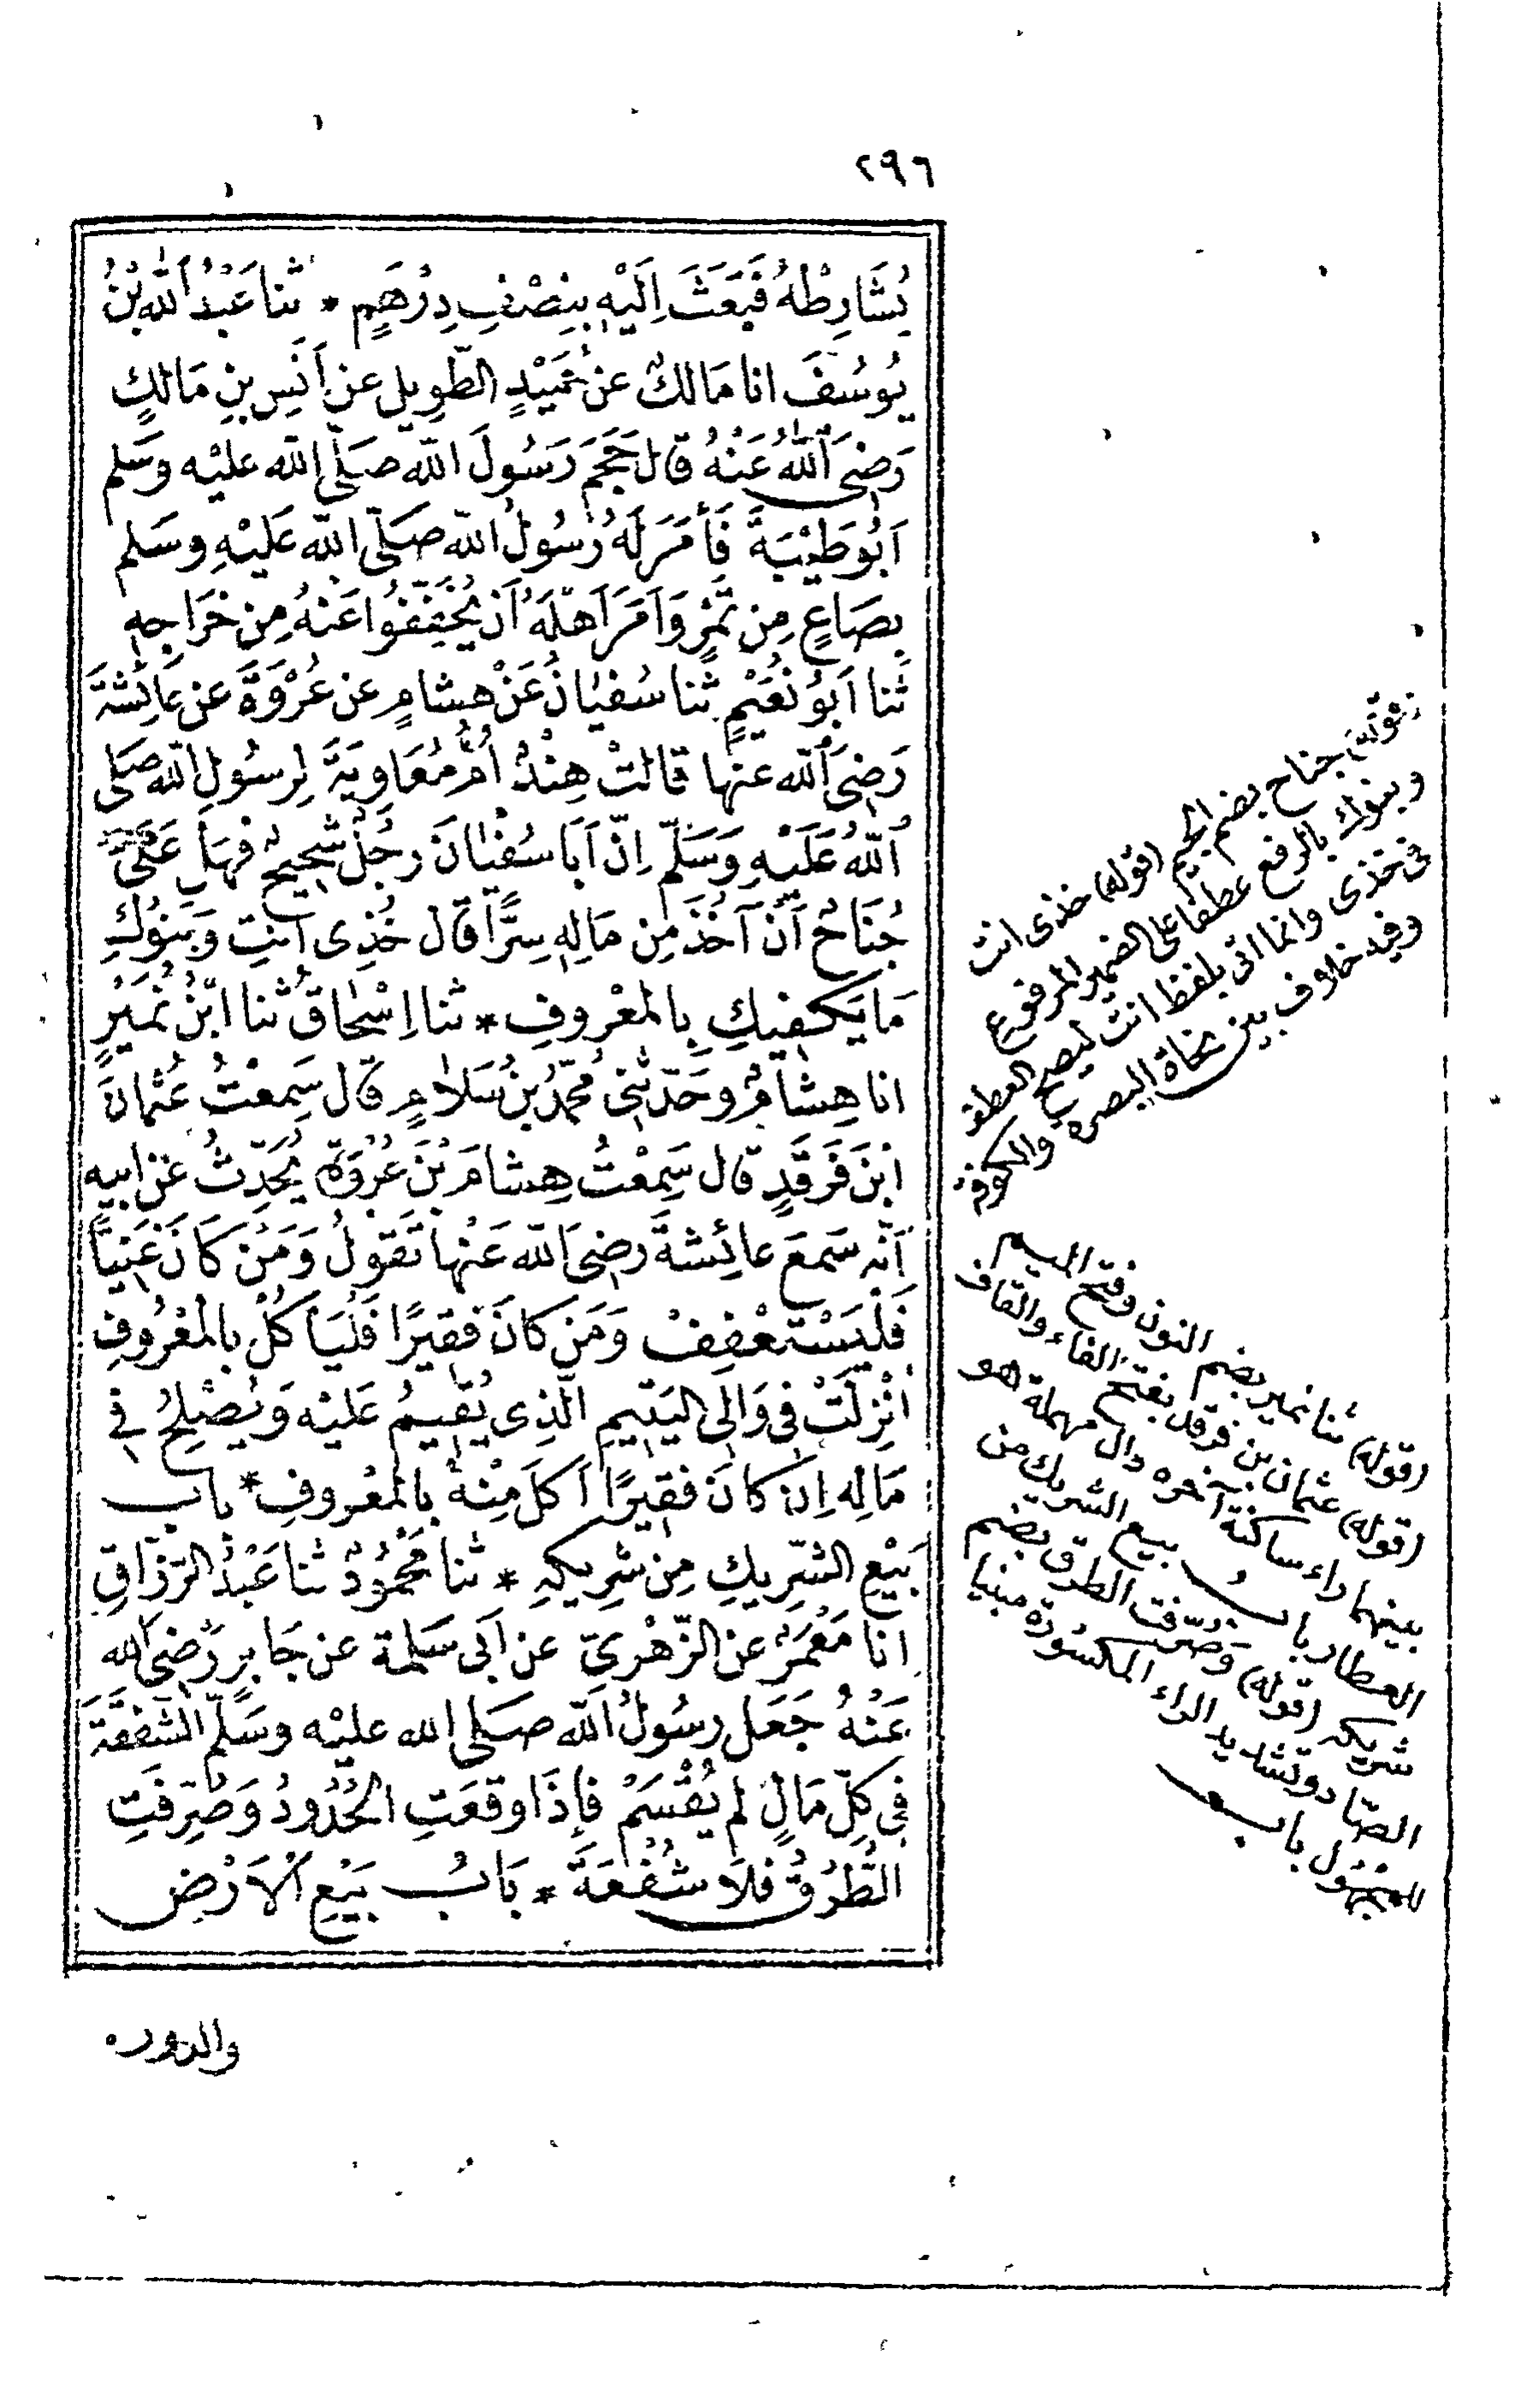 ٢٩٦
يُشَارِطْهُ فَبَعَثَ اِلَيْهِ بِنِصْفِ دِرْهَمٍ * ثنا عَبْدُ اللّٰهِ بْنُ
يُوسُفَ انا مَالكٌ عَنْ حُمَيْدٍ الطَّوِيلِ عن اَنَسِ بنِ مَالكٍ
رَضِىَ اللّٰهُ عَنْهُ قال حَجَمَ رَسُولَ اللّٰه صَلَّى اللّٰه عليْه وَسَلم
اَبُو طَيْبَةَ فَأَمَرَ لَهُ رَسُولُ اللّٰه صَلَّى اللّٰه عَلَيْهِ وسَلم
بصَاعٍ مِن تَمْرٍ وَاَمَرَ اَهْلَهُ اَنْ يُخَفِّفُوا عَنْهُ مِن خَرَاجِهِ
ثَنا اَبُو نُعَيْمٍ ثنا سُفيَانُ عَنْ هِشامٍ عن عُرْوَةَ عن عَائِشَةَ
رَضِىَ اللّٰه عنها قالتْ هِنْدٌ اُمُّ مُعَاوِيَةَ لِرسُولِ اللّٰه صَلى
اللّٰهُ عَلَيْهِ وَسَلَّم اِنّ اَبَا سُفْيَانَ رجُلٌ شَحِيحٌ فهَل عَلَىَّ
جُنَاحٌ أَنْ آخُذَ مِن مَالِهِ سِرًّا قَال خُذِى اَنتِ وَبَنُوكِ
مَا يَكفِيكِ بِالمعْرُوفِ * ثنا اِسْحَاقُ ثنا ابْنُ نُمَيْرٍ
انا هِشَامٌ وحَدّثنِى مُحَمّدُ بنُ سَلامٍ قال سَمِعْتُ عُثْمَانَ
ابْنَ فَرْقَدٍ قال سَمِعْتُ هِشامَ بْنَ عُرْوَةَ يُحَدِّثُ عن ابيهِ
اَنّه سَمعَ عائِشةَ رضِىَ اللّٰه عَنْها تَقولُ وَمَنْ كَانَ غَنِيّاً
فَلْيَسْتعْفِفْ وَمَن كانَ فَقيرًا فَلْيَأْكُلْ بالمعْرُوفِ
انْزِلَتْ فِى وَالِى اليَتِيمِ الَّذِى يُقِيمُ عَليْه وَيُصْلِحُ فى
مَالِه اِن كانَ فقِيرًا اَكَلَ مِنْهُ بالمعْروفِ * باب
بَيْعِ الشّرِيكِ مِن شَرِيكِهِ * ثنا مَحْمُودٌ ثنا عَبْدُ الرّزّاقِ
انا مَعْمَرٌ عن الزّهْرِىّ عن اَبى سَلمة عن جَابرٍ رَضِىَ الله
عَنْهُ جَعَل رسُولُ اللّٰه صَلى الله عليْه وسَلّم الشّفعَةَ
فِى كلِّ مَالٍ لم يُقْسَمْ فَإِذَا وَقعَتِ الحُدُودُ وَصُرِّفَتِ
الطُّرُقُ فلَا شُفْعَةَ * بَابُ بَيْعِ الْاَرْضِ
والدور
جناح بضم الجيم (قوله) خذى انت
وبنوك بالرفع عطفا على الضمير المرفوع
فى خذى وانما اتى بلفظ انت ليصح العطف
وفيه خلاف بين نحاة البصره والكوفه
(قوله) ثنا نمير بضم النون وفتح الميم
(قوله) عثمان بن فرقد بفتح الفاء والقاف
بينهما راء ساكنة آخره دال مهملة هو
العطار باب بيع الشريك من
شريكه (قوله) وصرّفت الطرق بضم
الصّاد وتشديد الراء المكسورة مبنيا
للمجهول باب